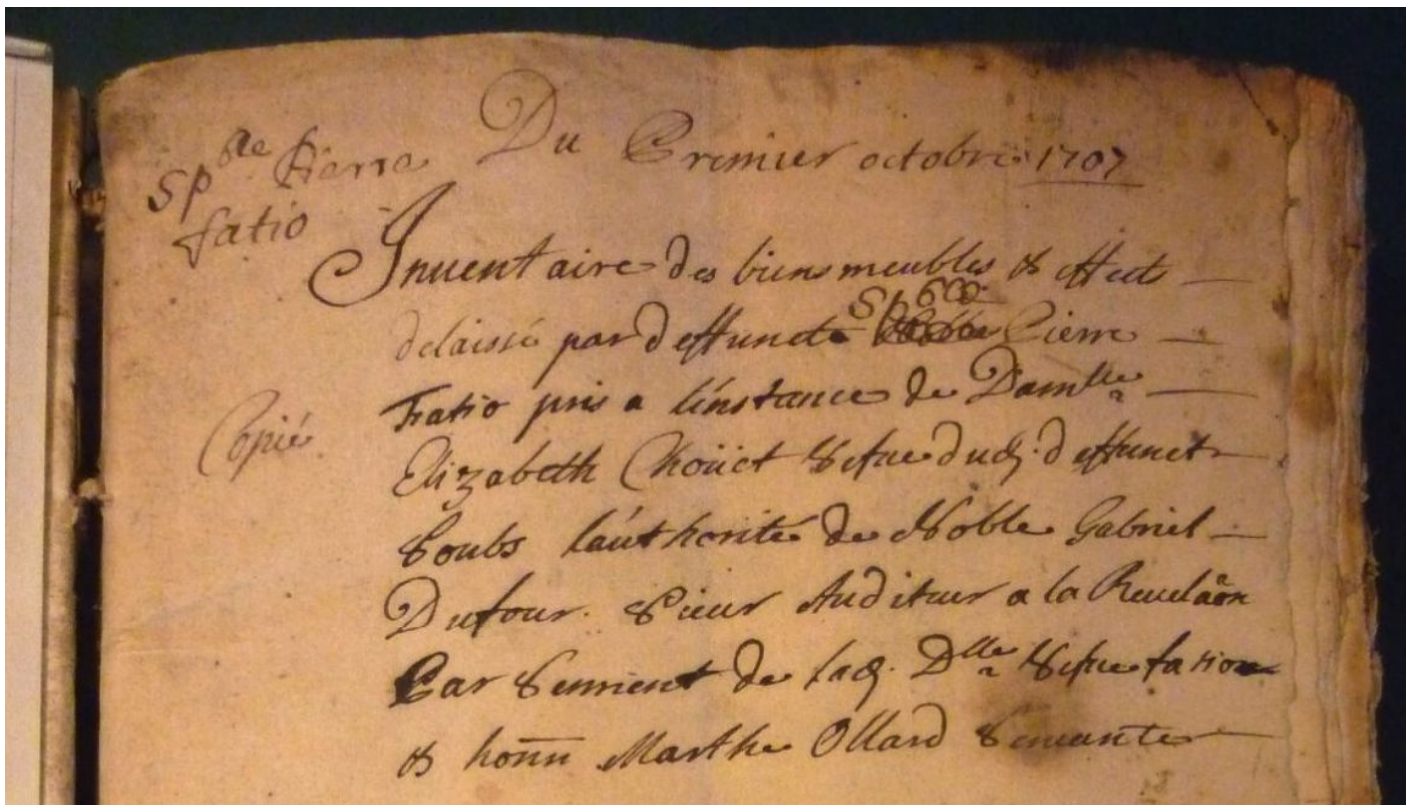 Sp^ble Pierre
fatio
Du Premier octobre 1707
Inuentaire des biens meubles & effects
delaissé par deffunct Sp^ble Pierre
Fatio pris a linstance de Dam^lle
Copié
Elizabeth Choüet Vefue dud. deffunct
Soubs lauthorité de Noble Gabriel
Dufour. Sieur Auditeur a la Reuelaõn
Par Serment de lad. D^lle Vefue fatio
& honn Marthe Ollard Seruante